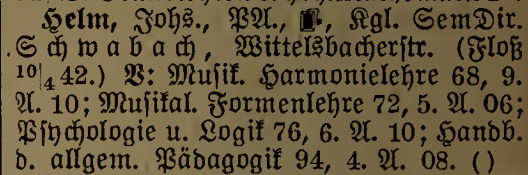 Helm, Johs., PA., Kgl. SemDir.
Schwabach, Wittelsbacherstr. (Floß
10|4 42.) V: Musik. Harmonielehre 68, 9.
A. 10; Musikal. Formenlehre 72, 5. A. 06;
Psychologie u. Logik 76, 6. A. 10; Handb.
d. allgem. Pädagogik 94, 4. A. 08. ()